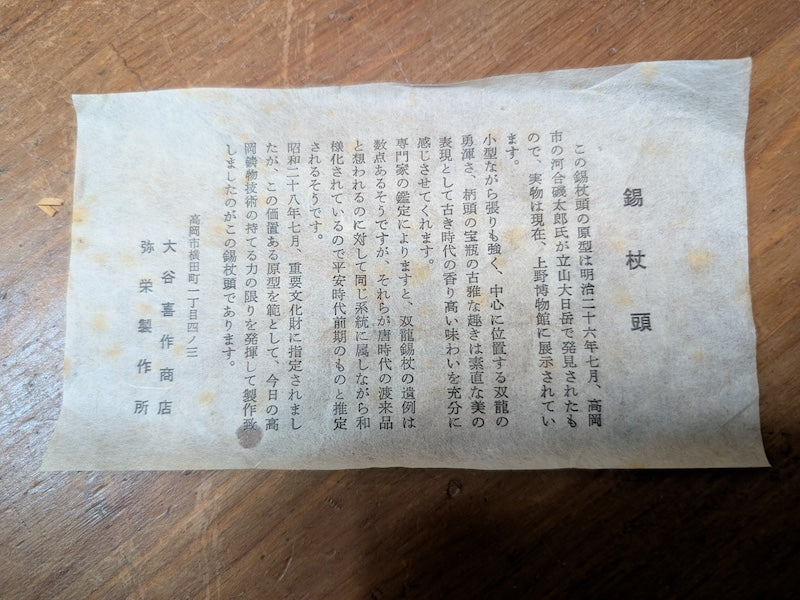 錫杖頭
この錫杖頭の原型は明治二十六年七月、高岡
市の河合磯太郎氏が立山大日岳で発見されたも
ので、実物は現在、上野博物館に展示されてい
ます。
小型ながら張りも強く、中心に位置する双龍の
勇渾さ、柄頭の宝瓶の古雅な趣きは素直な美の
表現として古き時代の香り高い味わいを充分に
感じさせてくれます。
専門家の鑑定によりますと、双龍錫杖の遺例は
数点あるそうですが、それらが唐時代の渡来品
と想われるのに対して同じ系統に属しながら和
様化されているので平安時代前期のものと推定
されるそうです。
昭和二十八年七月、重要文化財に指定されまし
たが、この価置ある原型を範として、今日の高
岡鋳物技術の持てる力の限りを発揮して製作致
しましたのがこの錫杖頭であります。
高岡市横田町一丁目四ノ三
大谷喜作商店
弥栄製作所